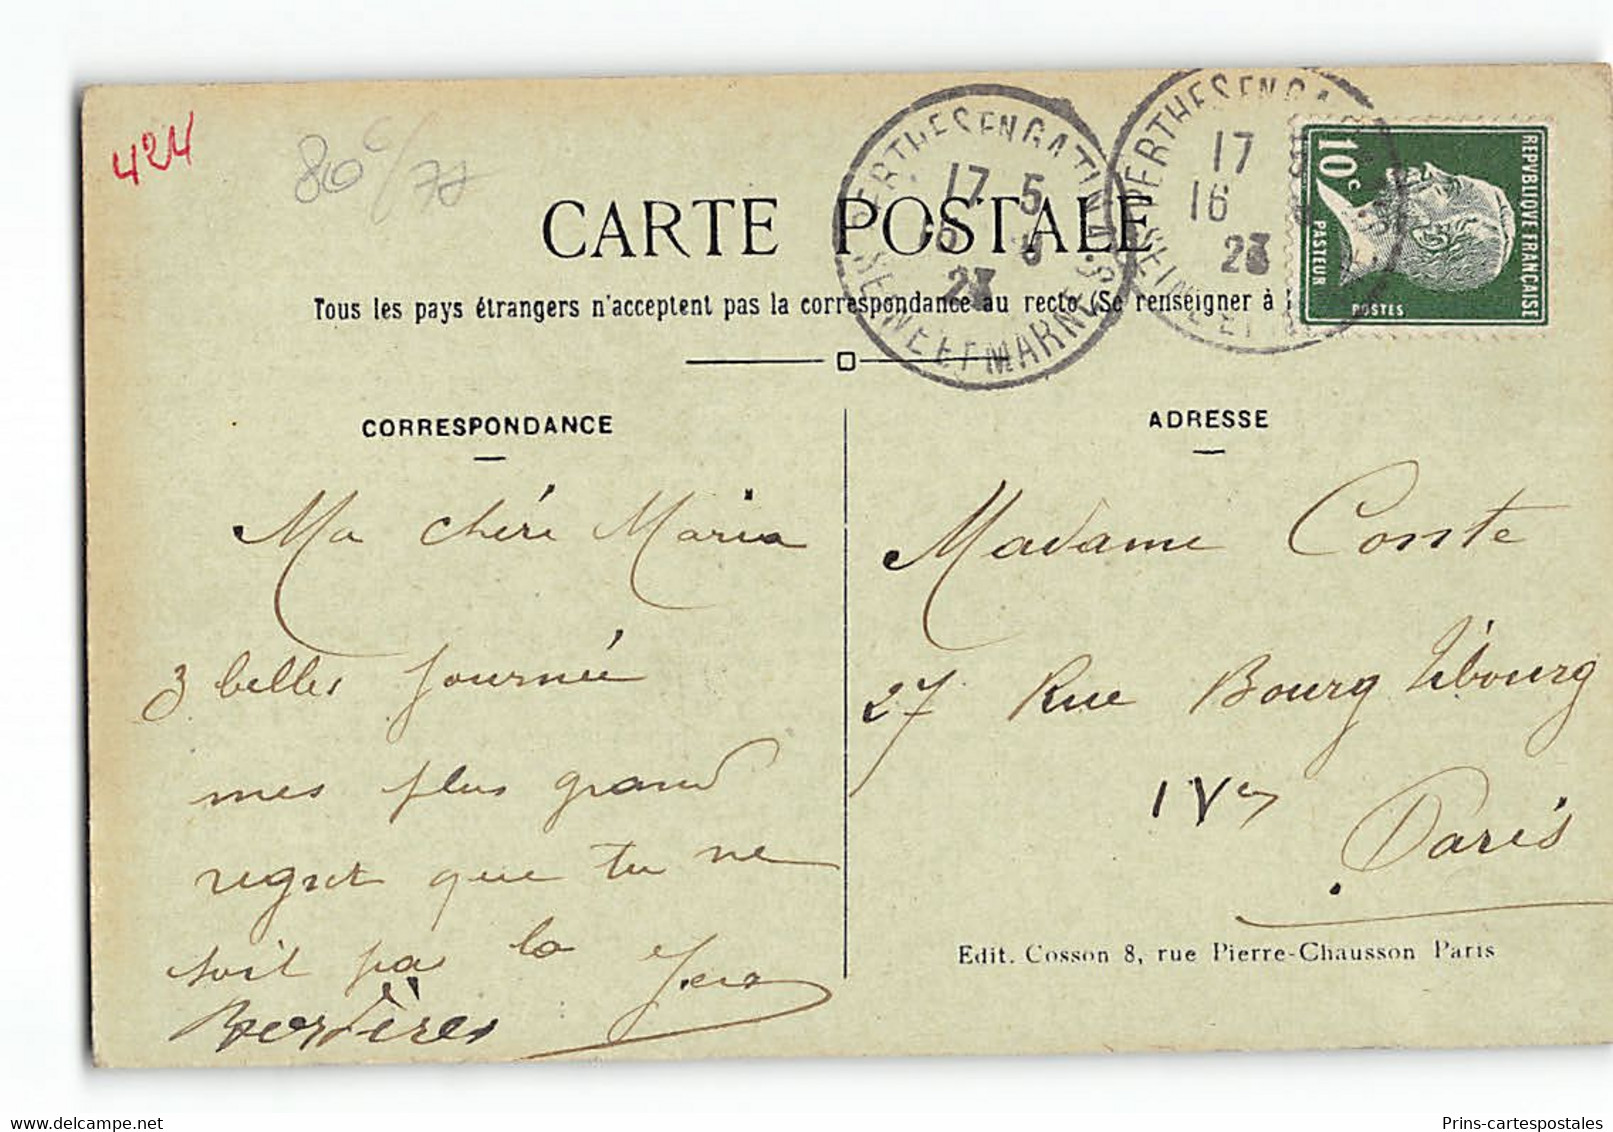 424
80c/78
CARTE POSTALE
Tous les pays étrangers n'acceptent pas la correspondance au recto (Se renseigner à
PERTHES EN GATINAIS
17 5
16
23
SEINE ET MARNE
PERTHES EN GA
17
16
23
SEINE ET
REPVBLIQVE FRANCAISE
10c
PASTEUR
POSTES
CORRESPONDANCE
Ma chéri Maria
3 belles journée
mes plus grand
regret que tu ne
soit pas la
ADRESSE
Madame Conte
27 Rue Bourg Tibourg
IVe
Paris
Edit. Cosson 8, rue Pierre-Chausson Paris
Prins-cartespostales